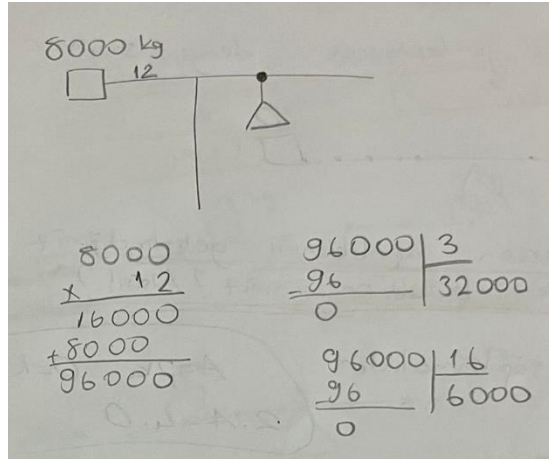 8000 kg
12
8000
x 12
16000
+8000
96000
96000 | 3
96 | 32000
0
96000 | 16
96 | 6000
0